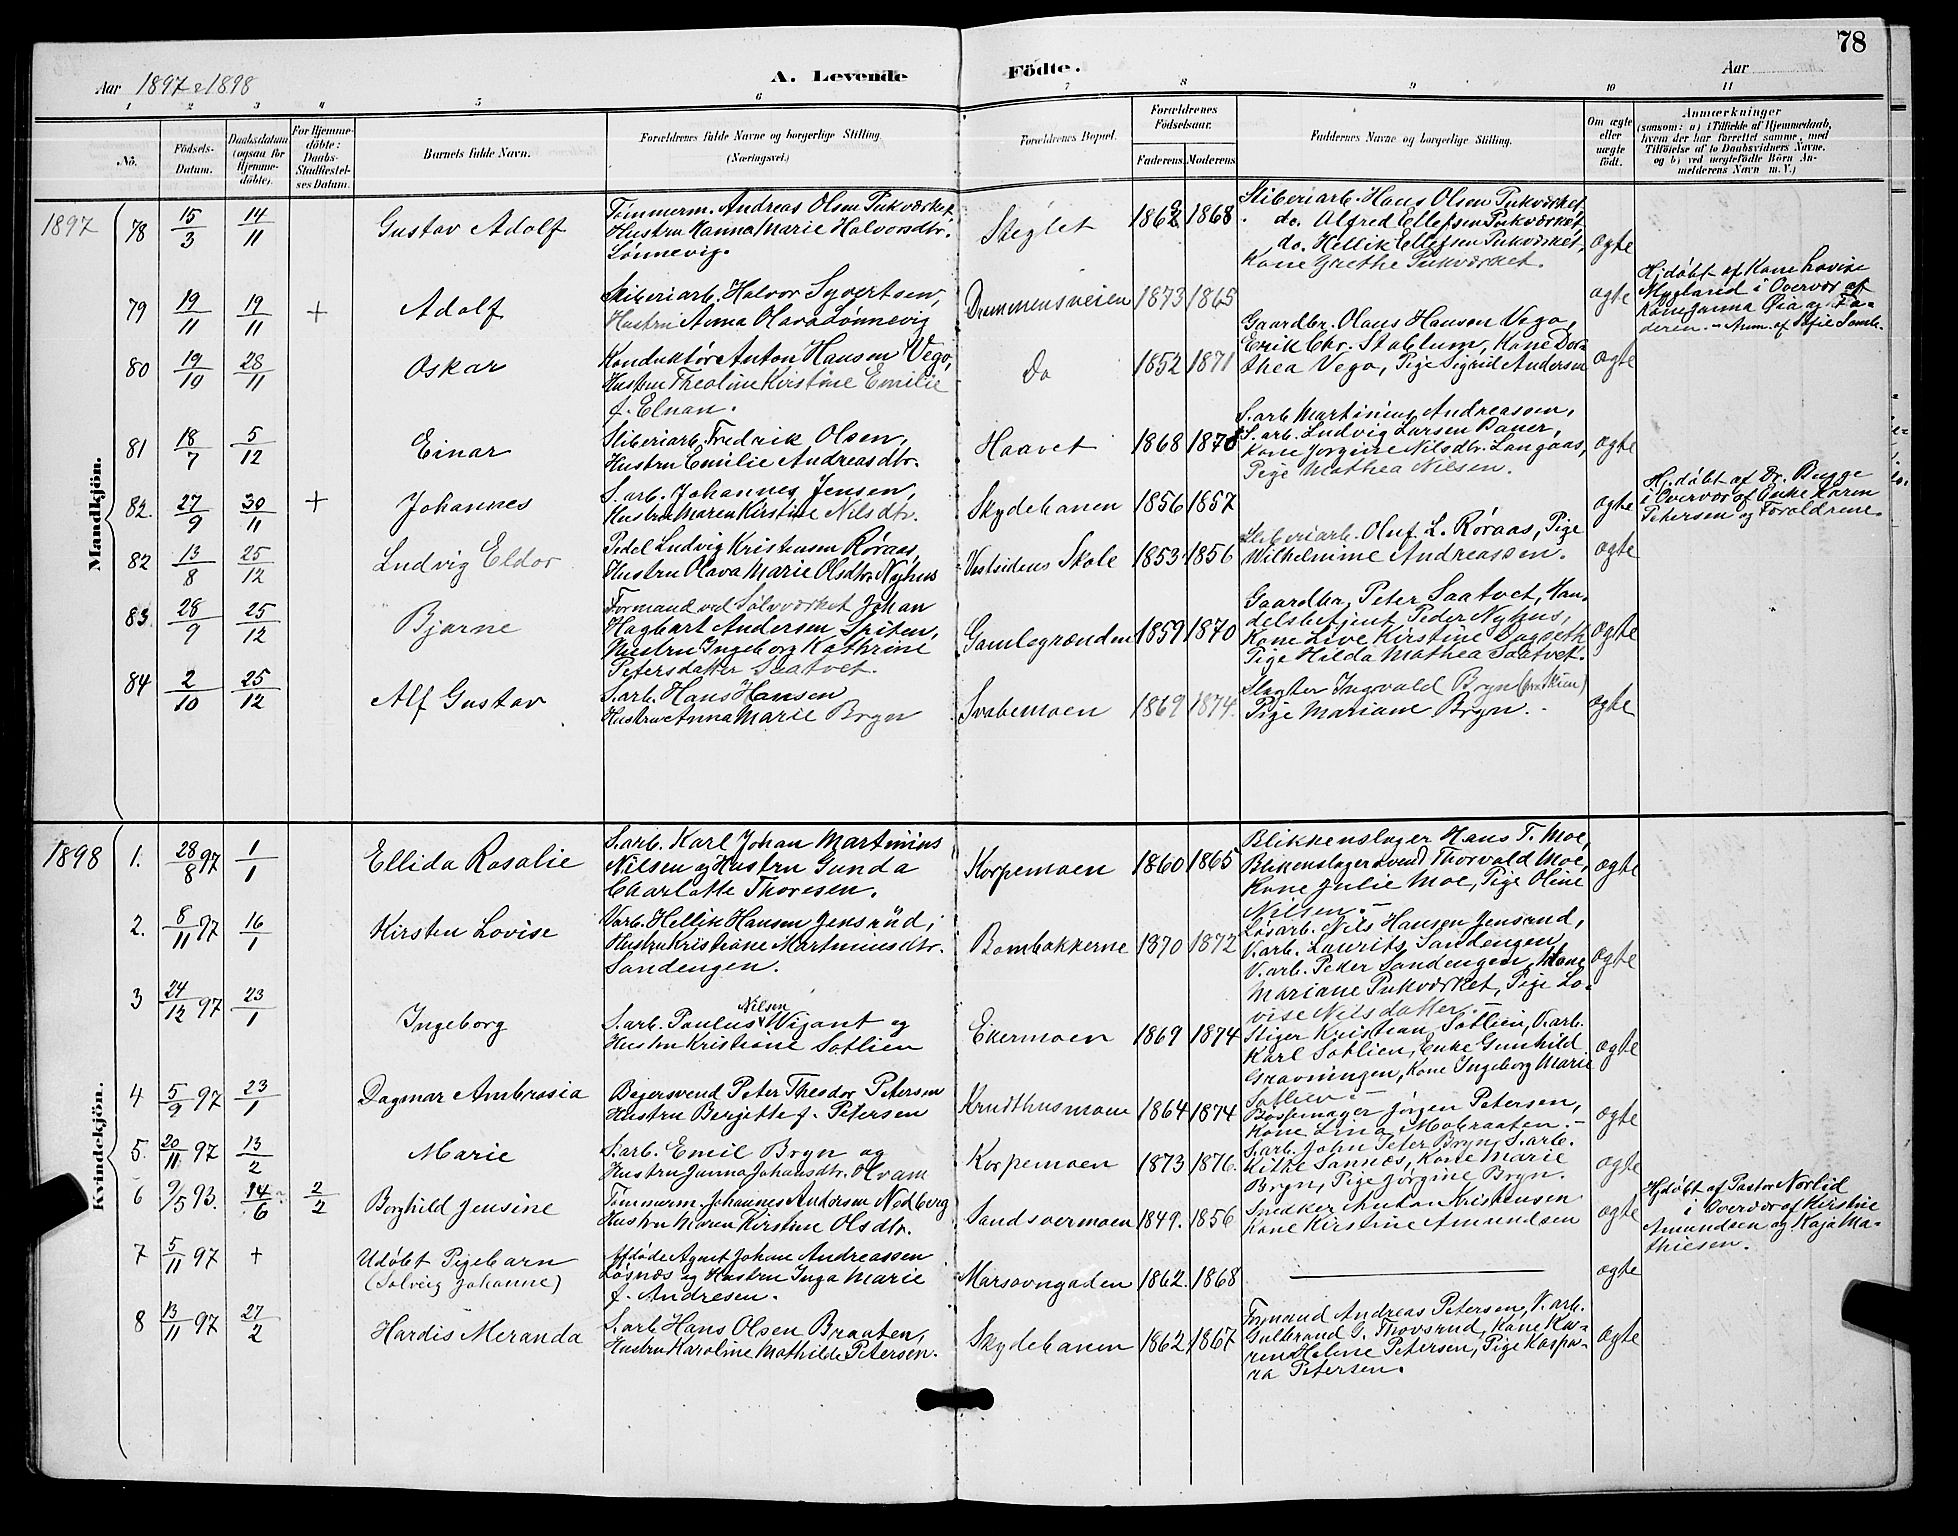 78
Aar 1897 & 1898 A. Levende Födte. Aar
1 2 3 4 5 6 7 8 9 10 11
No. Födsels-Datum. Daabsdatum (ogsaa för Hjemmedöbte). For Hjemmedöbte: Daabs-Stadfæstelses Datum. Barnets fulde Navn. Forældrenes fulde Navne og borgerlige Stilling. (Næringsvei.) Forældrenes Bopæl. Forældrenes Födselsaar. Faderens Moderens Faddernes Navne og borgelige Stilling. Om ægte eller uægte födt. Anmærkninger (saasom: a) i Tilfælde af Hjemmedaab, hvem der har forrettet samme, med Tilföielse af to Daabsvidners Navne, og b) ved uægtefödte Börn Anmelderens Navn m. V.)
1897
Mandkjön.
78 15/3 14/11 Gustav Adolf
Tømmerm. Andreas Olsen Pukværket,
Hustru Hanna Marie Halvorsdtr.
Lønnevig.
Steglet 1862 1868
Stiberiarb. Hans Olsen Pukværket
do. Alfred Ellefsen Pukværket,
do. Hellik Ellefsen Pukværket,
Kone Grethe Pukværket.
ægte
79 19/11 19/11 + Adolf
Stiberiarb. Halvor Syvertsen,
Hustru Anna Olava Lønnevig
Drammensveien 1873 1865
ægte
Hjdøbt af Kone Lovise
Mygland i Overvær af
Kone Janna Øia og Fa-
deren.
80 19/10 28/11 Oskar
Konduktør Anton Hansen Vego,
Hustru Theoline Kirstine Emilie
f. Elnan.
Do 1852 1871
Gaardbr. Olaus Hansen Vego,
Erik Chr. Stablum, Kone Dor-
thea Vego, Pige Sigrid Andersen
ægte
81 18/7 5/12 Einar
Stiberiarb. Fredrik Olsen,
Hustru Emilie Andreasdtr.
Haavet 1868 1878
S. arb. Martinius Andreassen,
S. arb. Ludvig Larsen Bauer,
Kone Jørgine Nilsdtr. Langaas,
Pige Mathea Nilsen.
ægte
82. 27/9 30/11 + Johannes
S. arb. Johannes Jensen,
Hustru Maren Kirstine Nilsdtr.
Skydebanen 1856 1857
ægte
Hjdøbt af Dr. Bugge
i Overvær af Enke Karen
Petersen og Forældrene.
82 13/8 25/12 Ludvig Eldor
Pedel Ludvig Kristensen Røraas,
Hustru Olava Marie Olsdtr. Nyhus
Vestsidens Skole 1853 1856
Stiberiarb. Oluf L. Røraas, Pige
Wilhelmine Andreassen.
ægte
83 28/9 25/12 Bjarne
Formand ved Sølvværket Johan
Hagbart Andersen Spiten,
Hustru Ingeborg Kathrine
Petersdatter Saatvet.
Gamlegrænden 1859 1870
Gaardbr. Peter Saatvet, Han-
delsbetjent Peder Nyhus,
Kone Live Kirstine Bagseth
Pige Hilda Mathea Saatvet.
ægte
84 2/10 25/12 Alf Gustav
S. arb. Hans Hansen
Hustru Anna Marie Bryn
Svabemoen 1869 1874.
Slagter Ingvald Bryn (fra Skien)
Pige Mariane Bryn.
ægte
1898
Kvindekjön.
1. 28/8 97 1/1 Ellida Rosalie
S. arb. Karl Johan Martinius
Nilsen og Hustru Gunda
Charlotte Thoresen.
Korpemoen 1860 1865
Blikkenslager Hans T. Moe,
Blikenslagersvend Thorvald Moe,
Kone Julie Moe, Pige Oline
Nilsen.
ægte
2. 8/11 97 16/1 Kirsten Lovise
V. arb. Hellik Hansen Jensrud,
Hustru Kristiane Martiniusdtr.
Sandengen.
Bombakkerne 1870 1872
Løsarb. Nils Hansen Jensrud,
V. arb. Laurits Sandengen
V. arb. Peder Sandengen, Kone
Mariane Pukværket, Pige Lo-
vise Nilsdatter.
ægte
3 24/12 97 23/1 Ingeborg
S. arb. Paulus Nilsen Wigant og
Hustru Kristiane Sotlien
Ekermoen 1869 1874
Stiger Kristian Sotlien, V. arb.
Karl Sotlien, Enke Gunhild
Gravningen, Kone Ingeborg Marie
Sotlien.
ægte
4 5/9 97 23/1 Dagmar Ambrosia
Bøjersvend Peter Theodor Petersen
Hustru Berjette f. Petersen
Krudthusmoen 1864 1874
Børsemager Jørgen Petersen,
Kone Lina Mobraaten.
ægte
5. 20/11 97 13/2 Marie
S. arb. Emil Bryn og
Hustru Janna Johansdtr. Hvam
Korpemoen 1873 1876.
S. arb. John Peter Bryn, S. arb.
Kitke Sannæs, Kone Marie
Bryn, Pige Jørgine Bryn.
ægte
6 9/5 93. 14/6 2/2 Borghild Jensine
Tømmerm. Johannes Andersen Nedberg
Hustru Maren Kirstine Olsdtr.
Sandsværmoen 1849. 1856
Snekker Anton Kristensen
Kone Kirstine Amundsen
ægte
Hjdøbt af Pastor Norlid
i Overvær af Kirstine
Amundsen og Kaja Ma-
thiesen.
7 5/11 97 + Udøbt Pigebarn
(Solveig Johanne)
Afdøde Agent Johan Andreassen
Løsnæs og Hustru Inga Marie
f. Andresen.
Marsovngaden 1862. 1868
ægte
8 13/11 97 27/2 Hardis Meranda
S. arb. Hans Olsen Braaten,
Hustru Karoline Mathilde Petersen.
Skydebanen 1862 1867
Formand Andreas Petersen, V. arb.
Gulbrand G. Thovsrud, Kone Ka-
ren Helene Petersen, Pige Kaspa-
ra Petersen.
ægte